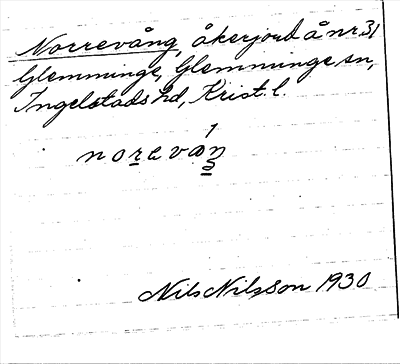 Norrevång, åkerjord å nr 31
Glemminge, Glemminge sn,
Ingelstads hd, Krist. l.
1
norevaŋ
2
Nils Nilsson 1930